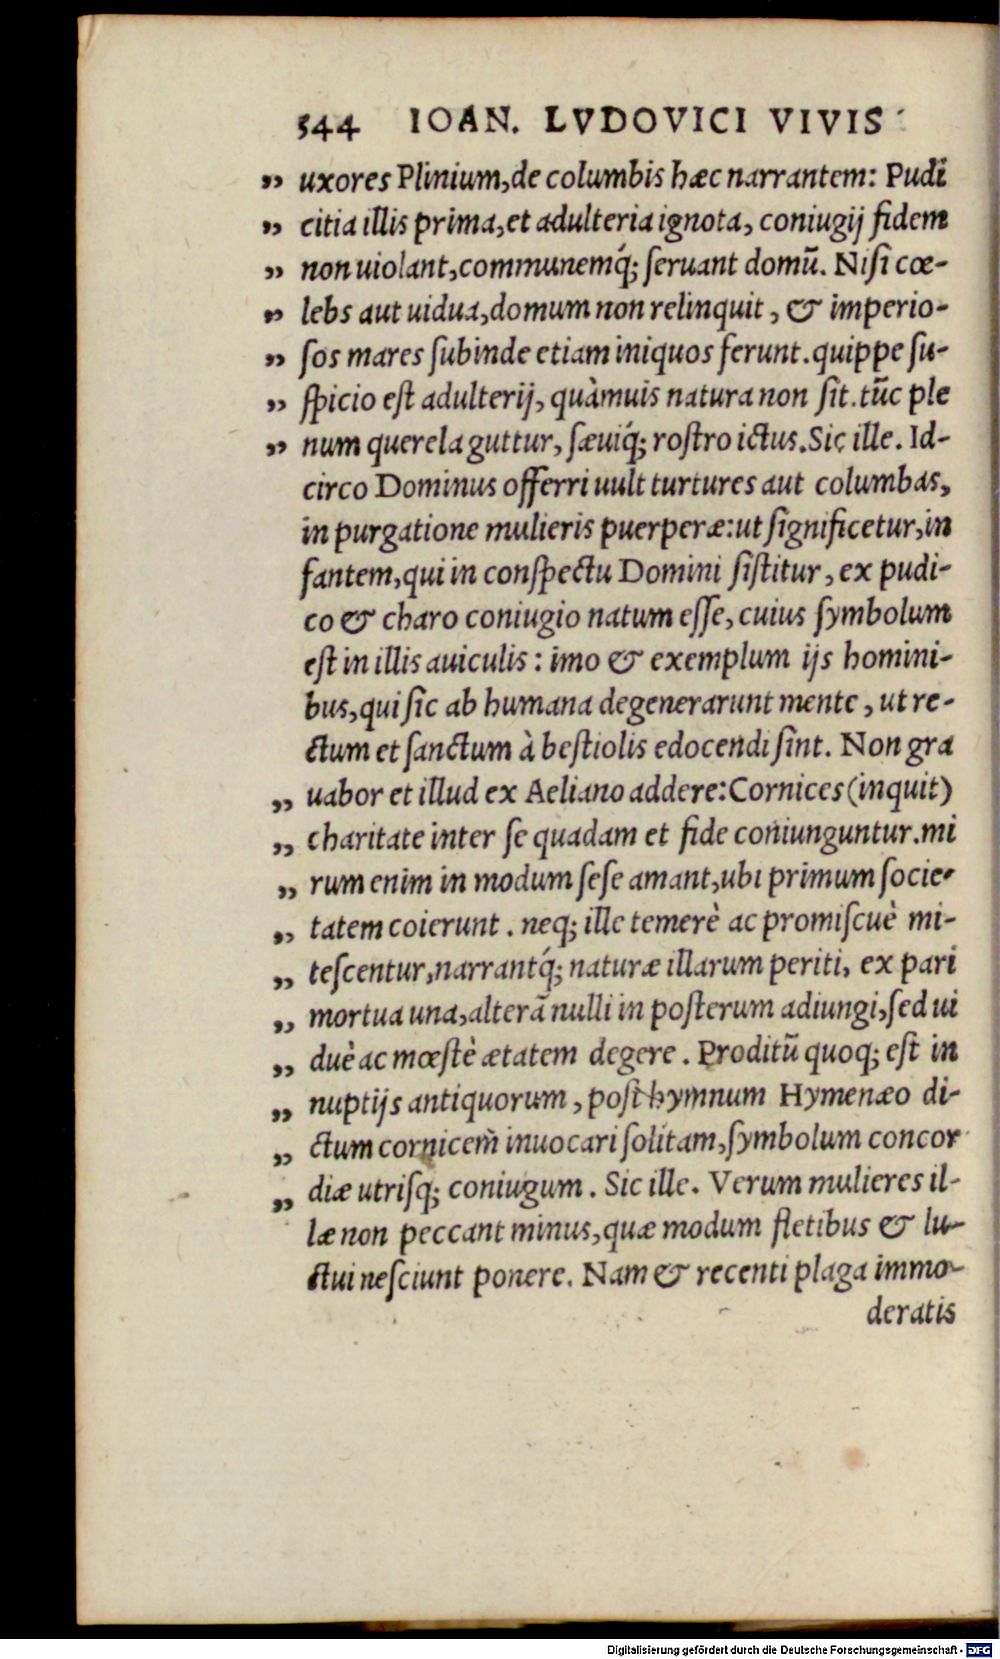 544 IOAN. LVDOVICI VIVIS
„ uxores Plinium, de columbis hæc narrantem: Pudi
„ citia illis prima, et adulteria ignota, coniugij fidem
„ non uiolant, communemq́; ſeruant domū. Niſi cœ-
„ lebs aut uidua, domum non relinquit, & imperio-
„ ſos mares ſubinde etiam iniquos ferunt. quippe ſu-
„ ſpicio eſt adulterij, quàmuis natura non ſit. tūc ple
„ num querela guttur, ſæuiq́; roſtro ictus. Sic ille. Id-
circo Dominus offerri uult turtures aut columbas,
in purgatione mulieris puerperæ: ut ſignificetur, in
fantem, qui in conſpectu Domini ſiſtitur, ex pudi-
co & charo coniugio natum eſſe, cuius ſymbolum
eſt in illis auiculis: imo & exemplum ijs homini-
bus, qui ſic ab humana degenerarunt mente, ut re-
ctum et ſanctum à beſtiolis edocendi ſint. Non gra
„ uabor et illud ex Aeliano addere: Cornices (inquit)
„ charitate inter ſe quadam et fide coniunguntur. mi
„ rum enim in modum ſeſe amant, ubi primum ſocie-
„ tatem coierunt. neq; ille temerè ac promiſcuè mi-
„ teſcentur, narrantq́; naturæ illarum periti, ex pari
„ mortua una, alterā nulli in poſterum adiungi, ſed ui
„ duè ac mœſtè ætatem degere. Proditū quoq; eſt in
„ nuptijs antiquorum, poſt hymnum Hymenæo di-
„ ctum cornicem inuocari ſolitam, ſymbolum concor
„ diæ utriſq; coniugum. Sic ille. Verum mulieres il-
læ non peccant minus, quæ modum fletibus & lu-
ctui neſciunt ponere. Nam & recenti plaga immo-
deratis
Digitalisierung gefördert durch die Deutsche Forschungsgemeinschaft - DFG